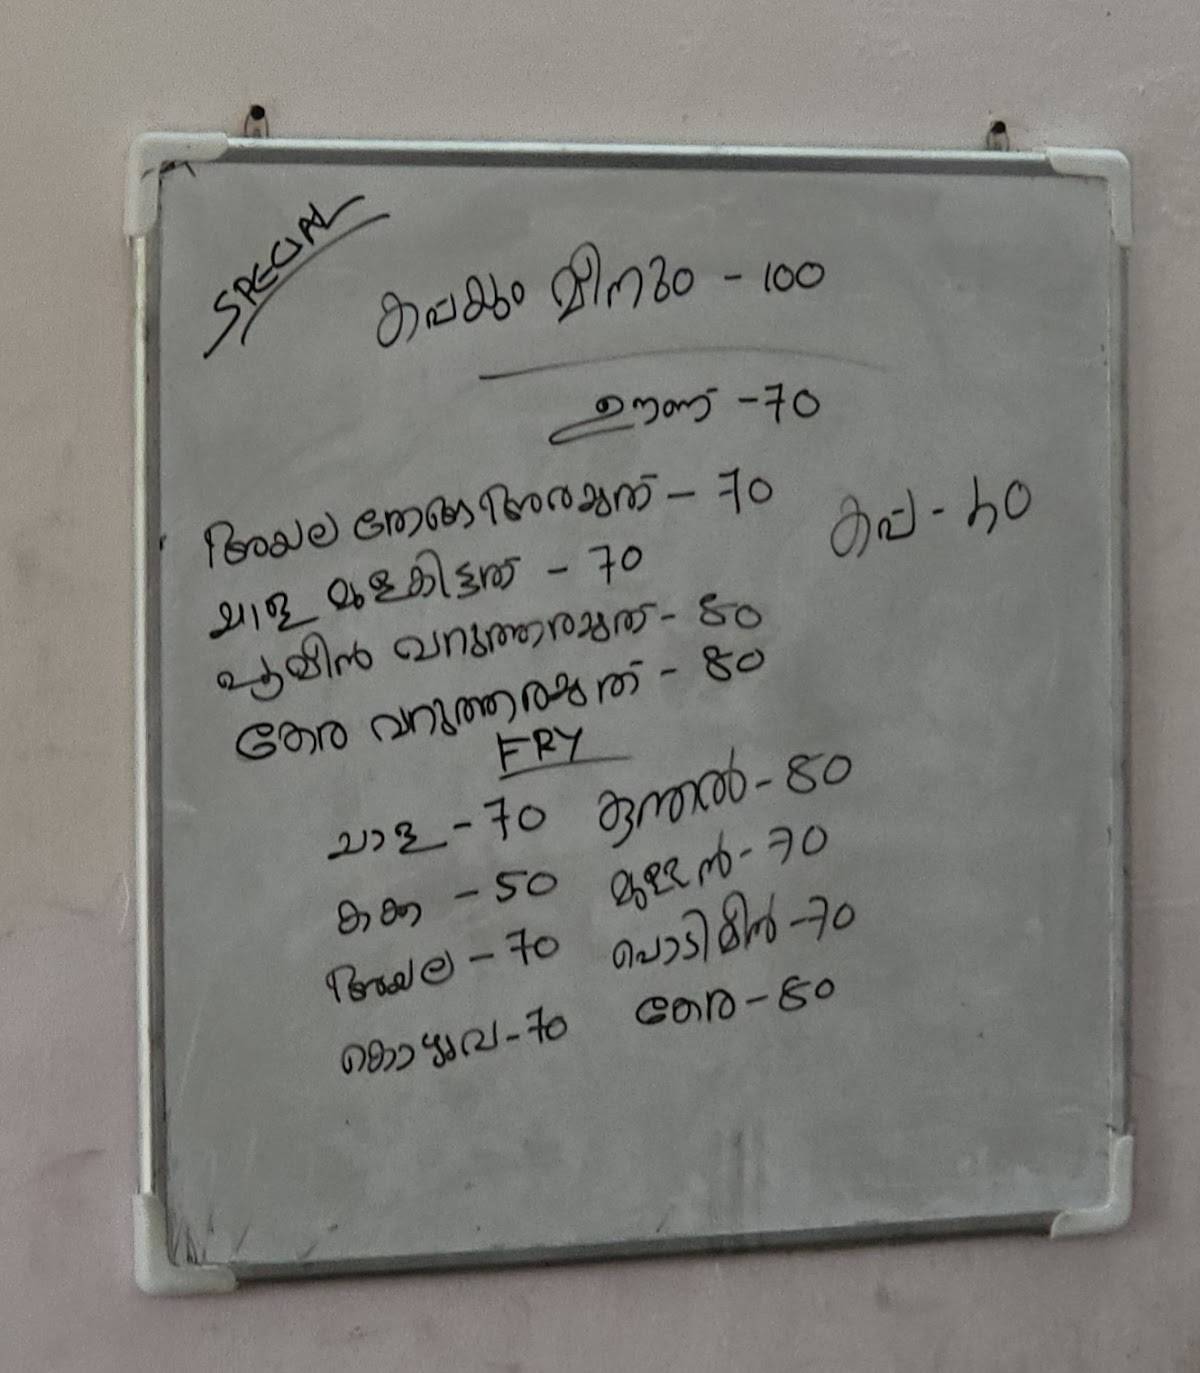 SPECIAL
കപ്പയും മീനും - 100
ഊണ് - 70
അയല തേങ്ങ അരച്ചത് - 70
കപ്പ - 40
ചാള മുളകിട്ടത് - 70
പൂമീൻ വറുത്തരച്ചത് - 80
കേര വറുത്തരച്ചത് - 80
FRY
ചാള - 70 കൂന്തൽ - 80
കക്ക - 50 മുള്ളൻ - 70
അയല - 70 പൊടിമീൻ - 70
കൊഴുവ - 70 കേര - 80